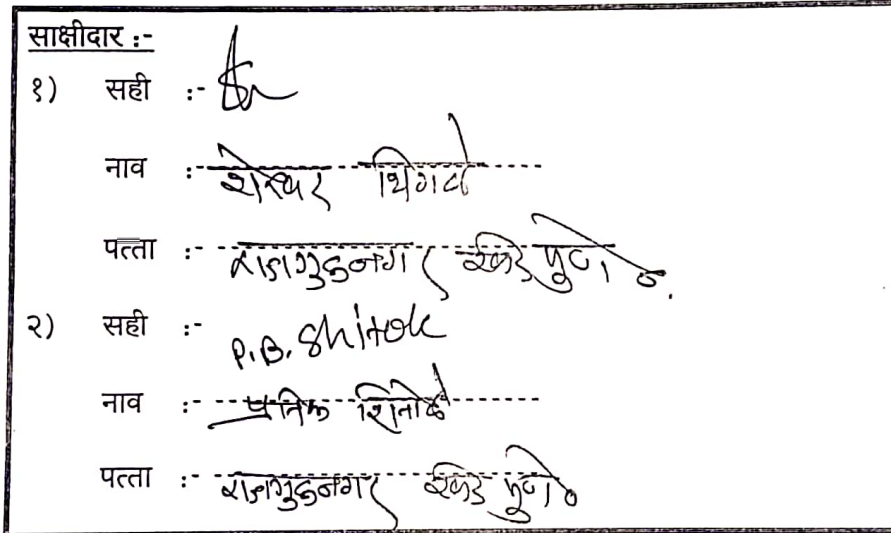 साक्षीदार :-
१) सही :-
नाव :- शेखर थिगळे
पत्ता :- राजगुरुनगर खेड पुणे.
२) सही :- P.B. Shitole
नाव :- प्रतिक शितोळे
पत्ता :- राजगुरुनगर खेड पुणे